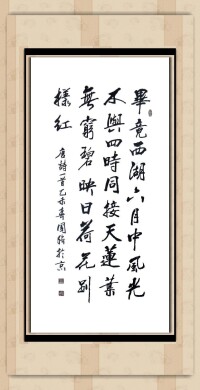 畢竟西湖六月中風光
不與四時同接天蓮葉
無窮碧映日荷花別
樣紅
唐詩一首乙未年國強於京